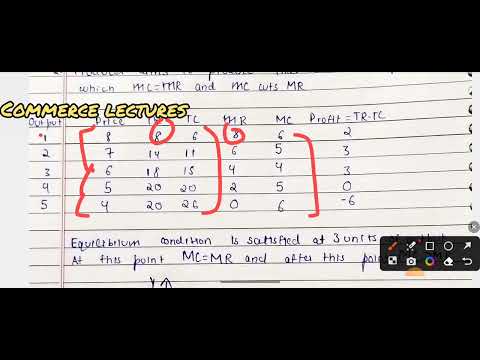 which MC=MR and MC cuts MR
Commerce lectures
Output Price TC MR MC Profit = TR-TC
1 8 8 6 8 6 2
2 7 14 11 6 5 3
3 6 18 15 4 4 3
4 5 20 20 2 5 0
5 4 20 26 0 6 -6
Equilibrium condition is satisfied at 3 units
At this point MC=MR and after this